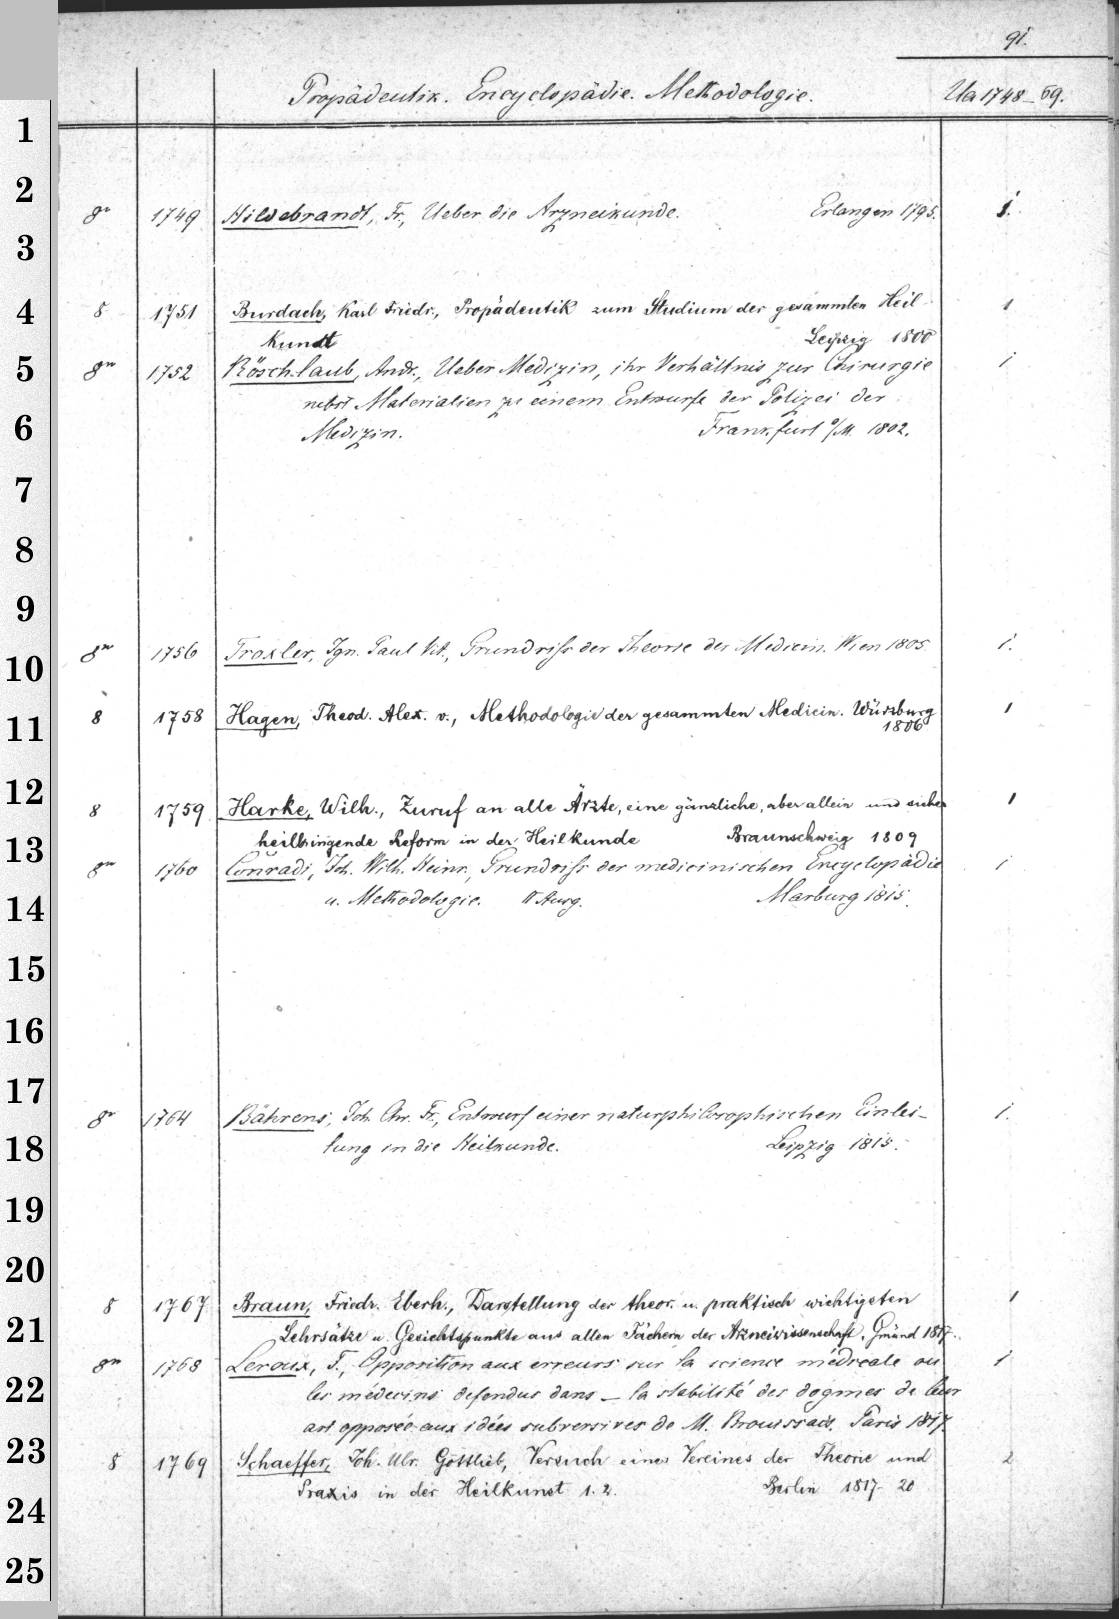 91.
Propädeutik. Encyclopädie. Methodologie. Ua 1748–69.
1
2
8° 1749 Hildebrandt, Fr., Ueber die Arzneikunde. Erlangen 1795. 1.
3
4
8 1751 Burdach, Karl Friedr., Propädeutik zum Studium der gesammten Heil- 1
kunst Leipzig 1800
5
8° 1752 Röschlaub, Andr., Ueber Medizin, ihr Verhältnis zur Chirurgie 1
nebst Materialien zu einem Entwurfe der Polizei der
6
Medizin. Frankfurt a/M. 1802.
7
8
9
8° 1756 Troxler, Ign. Paul Vit., Grundriss der Theorie der Medicin. Wien 1805. 1.
10
8 1758 Hagen, Theod. Alex. v., Methodologie der gesammten Medicin. Würzburg 1
11
1806
12
8 1759 Harke, Wilh., Zuruf an alle Ärzte, eine gänzliche, aber allein und sicher 1
heilbringende Reform in der Heilkunde Braunschweig 1809
13
8° 1760 Conradi, Joh. Wilh. Heinr., Grundriss der medicinischen Encyclopädie 1
u. Methodologie. II Ausg. Marburg 1815.
14
15
16
17
8° 1764 Bährens, Joh. Chr. Fr., Entwurf einer naturphilosophischen Einlei- 1.
tung in die Heilkunde. Leipzig 1815.
18
19
20
8 1767 Braun, Friedr. Eberh., Darstellung der theor. u. praktisch wichtigsten 1
21
Lehrsätze u. Gesichtspunkte aus allen Fächern der Arzneiwissenschaft. Gmünd 1817.
8° 1768 Leroux, F., Opposition aux erreurs sur la science médicale ou 1
22
les médecins defendus dans – la stabilité des dogmes de leur
art opposée aux idées subversives de M. Broussais. Paris 1817.
23
8 1769 Schaeffer, Joh. Ulr. Gottlieb, Versuch eines Vereines der Theorie und 2
Praxis in der Heilkunst 1. 2. Berlin 1817–20
24
25